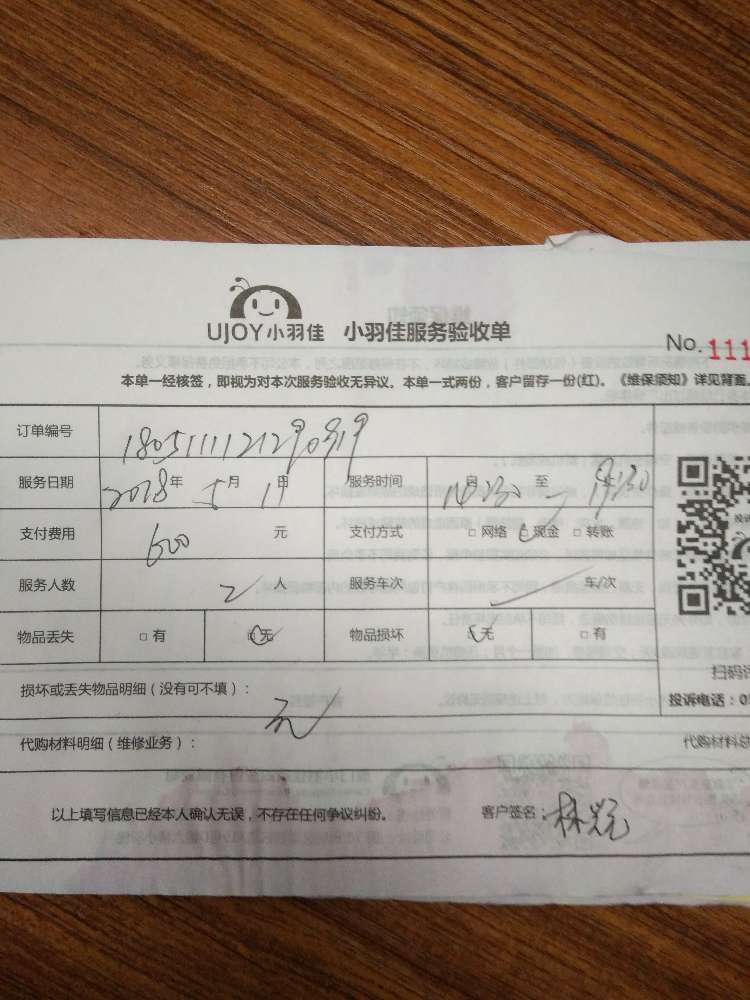 UJOY小羽佳 小羽佳服务验收单
No.111
本单一经核签，即视为对本次服务验收无异议。本单一式两份，客户留存一份(红)。《维保须知》详见背面。
订单编号 180511121290319
服务日期 2018年 5月 11日 服务时间 自 14:30 至 19:30
支付费用 600 元 支付方式 □网络 现金 □转账
服务人数 2 人 服务车次 车/次
物品丢失 □有 无 物品损坏 无 □有
损坏或丢失物品明细（没有可不填）： 无
扫码评
投诉电话：05
代购材料明细（维修业务）： 代购材料总
以上填写信息已经本人确认无误，不存在任何争议纠纷。 客户签名：林